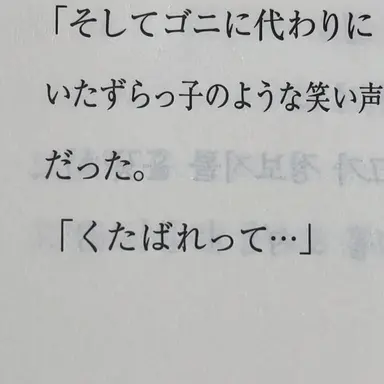 「そしてゴニに代わりに
いたずらっ子のような笑い声
だった。
「くたばれって…」